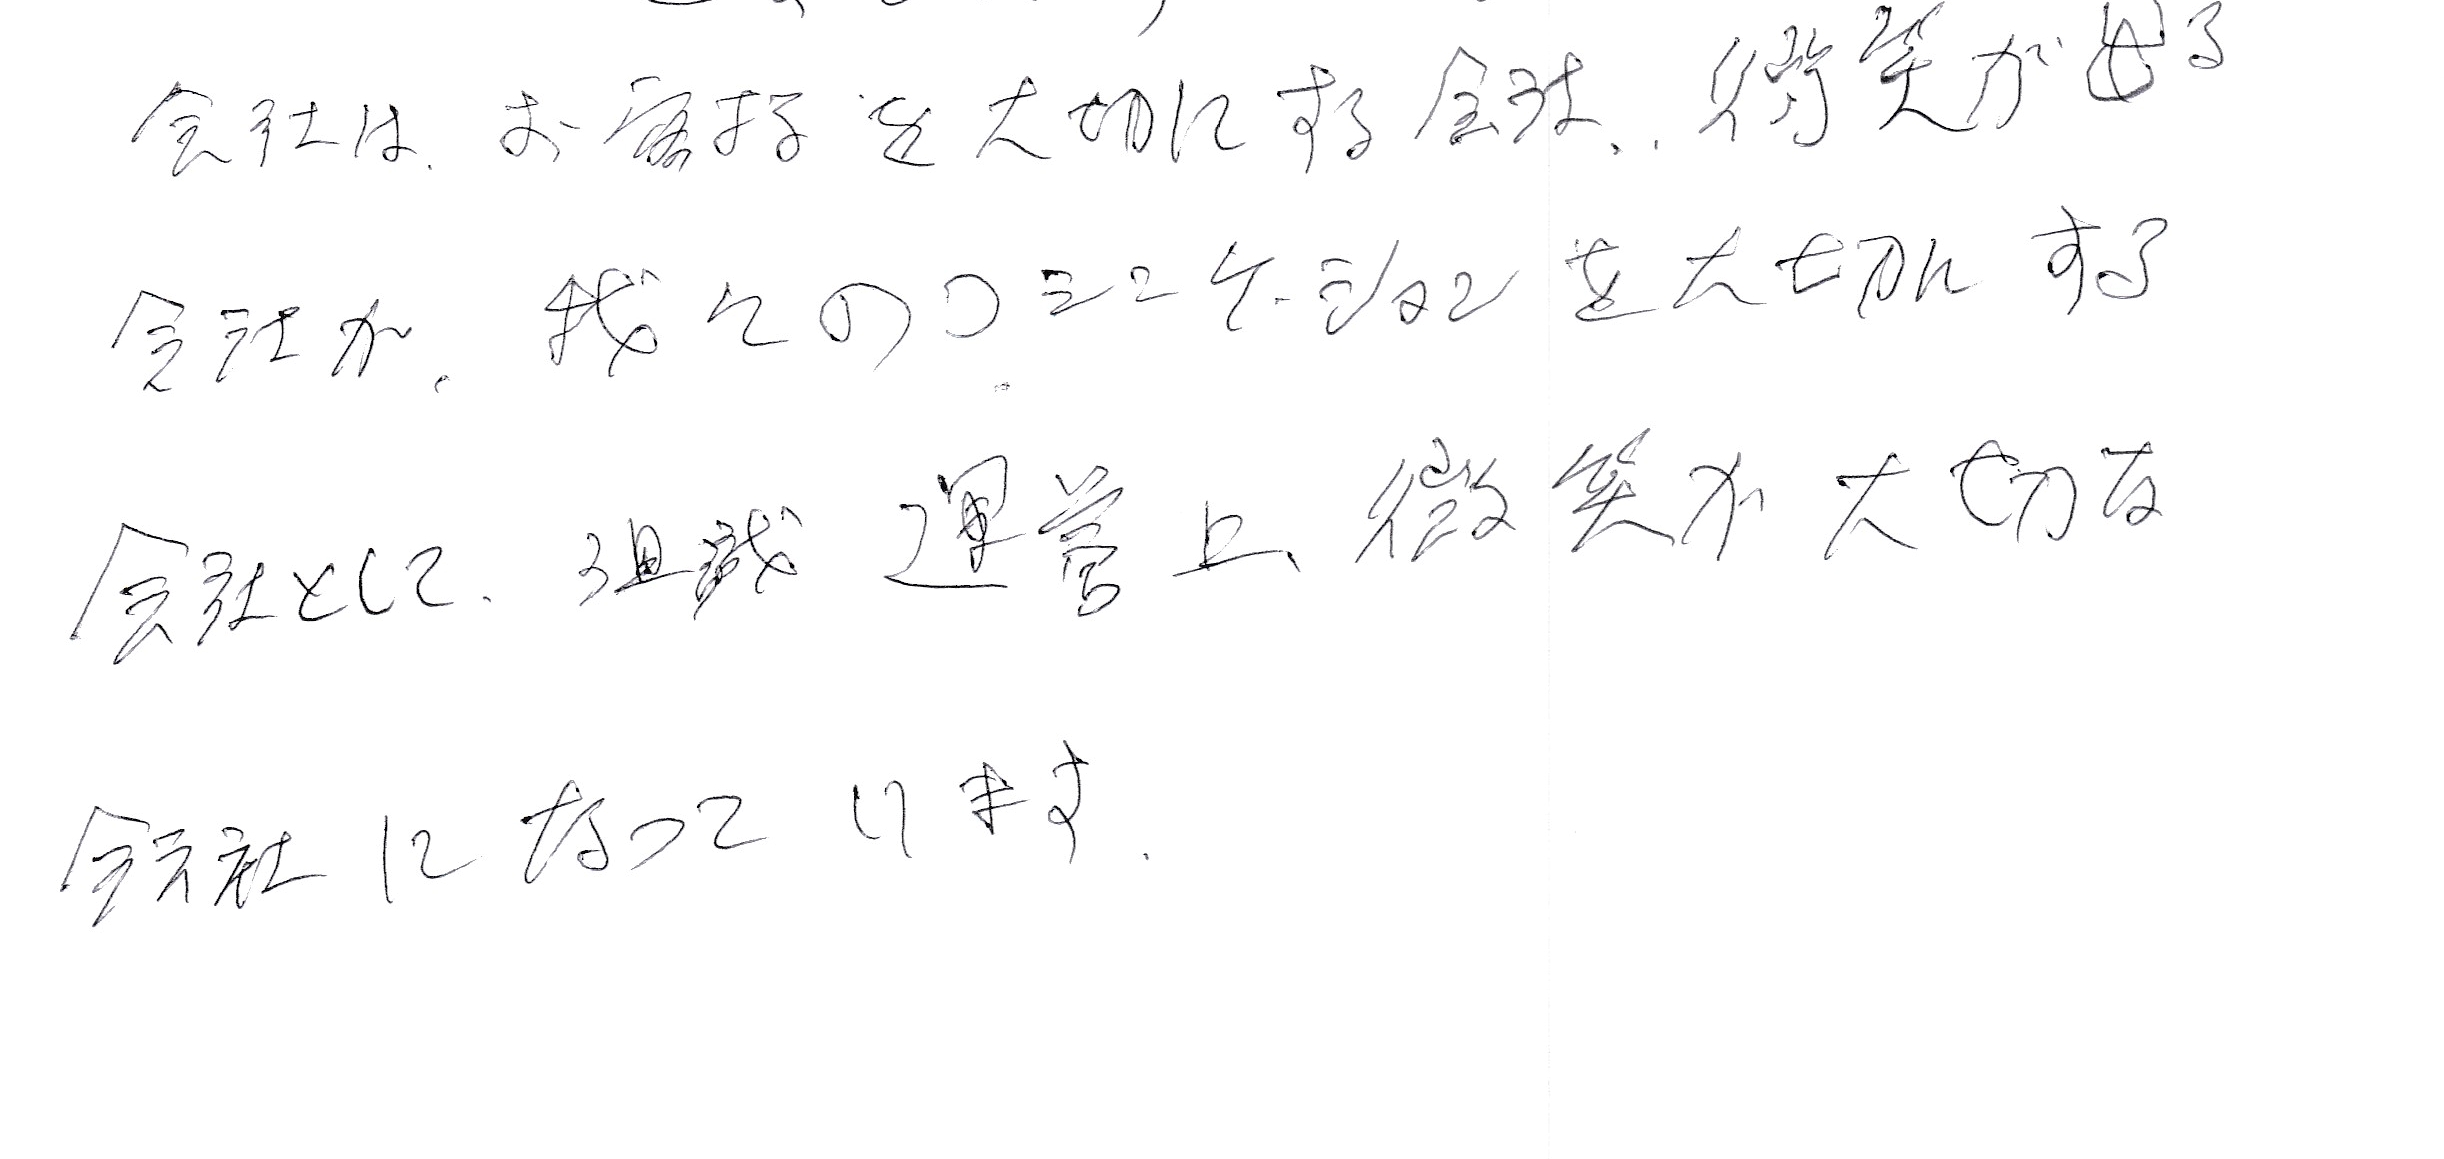 会社は、お客様を大切にする会社、微笑が出る
会社が、我々のコミニケーションを大切にする
会社として、組織運営上、微笑が大切な
会社になっています.